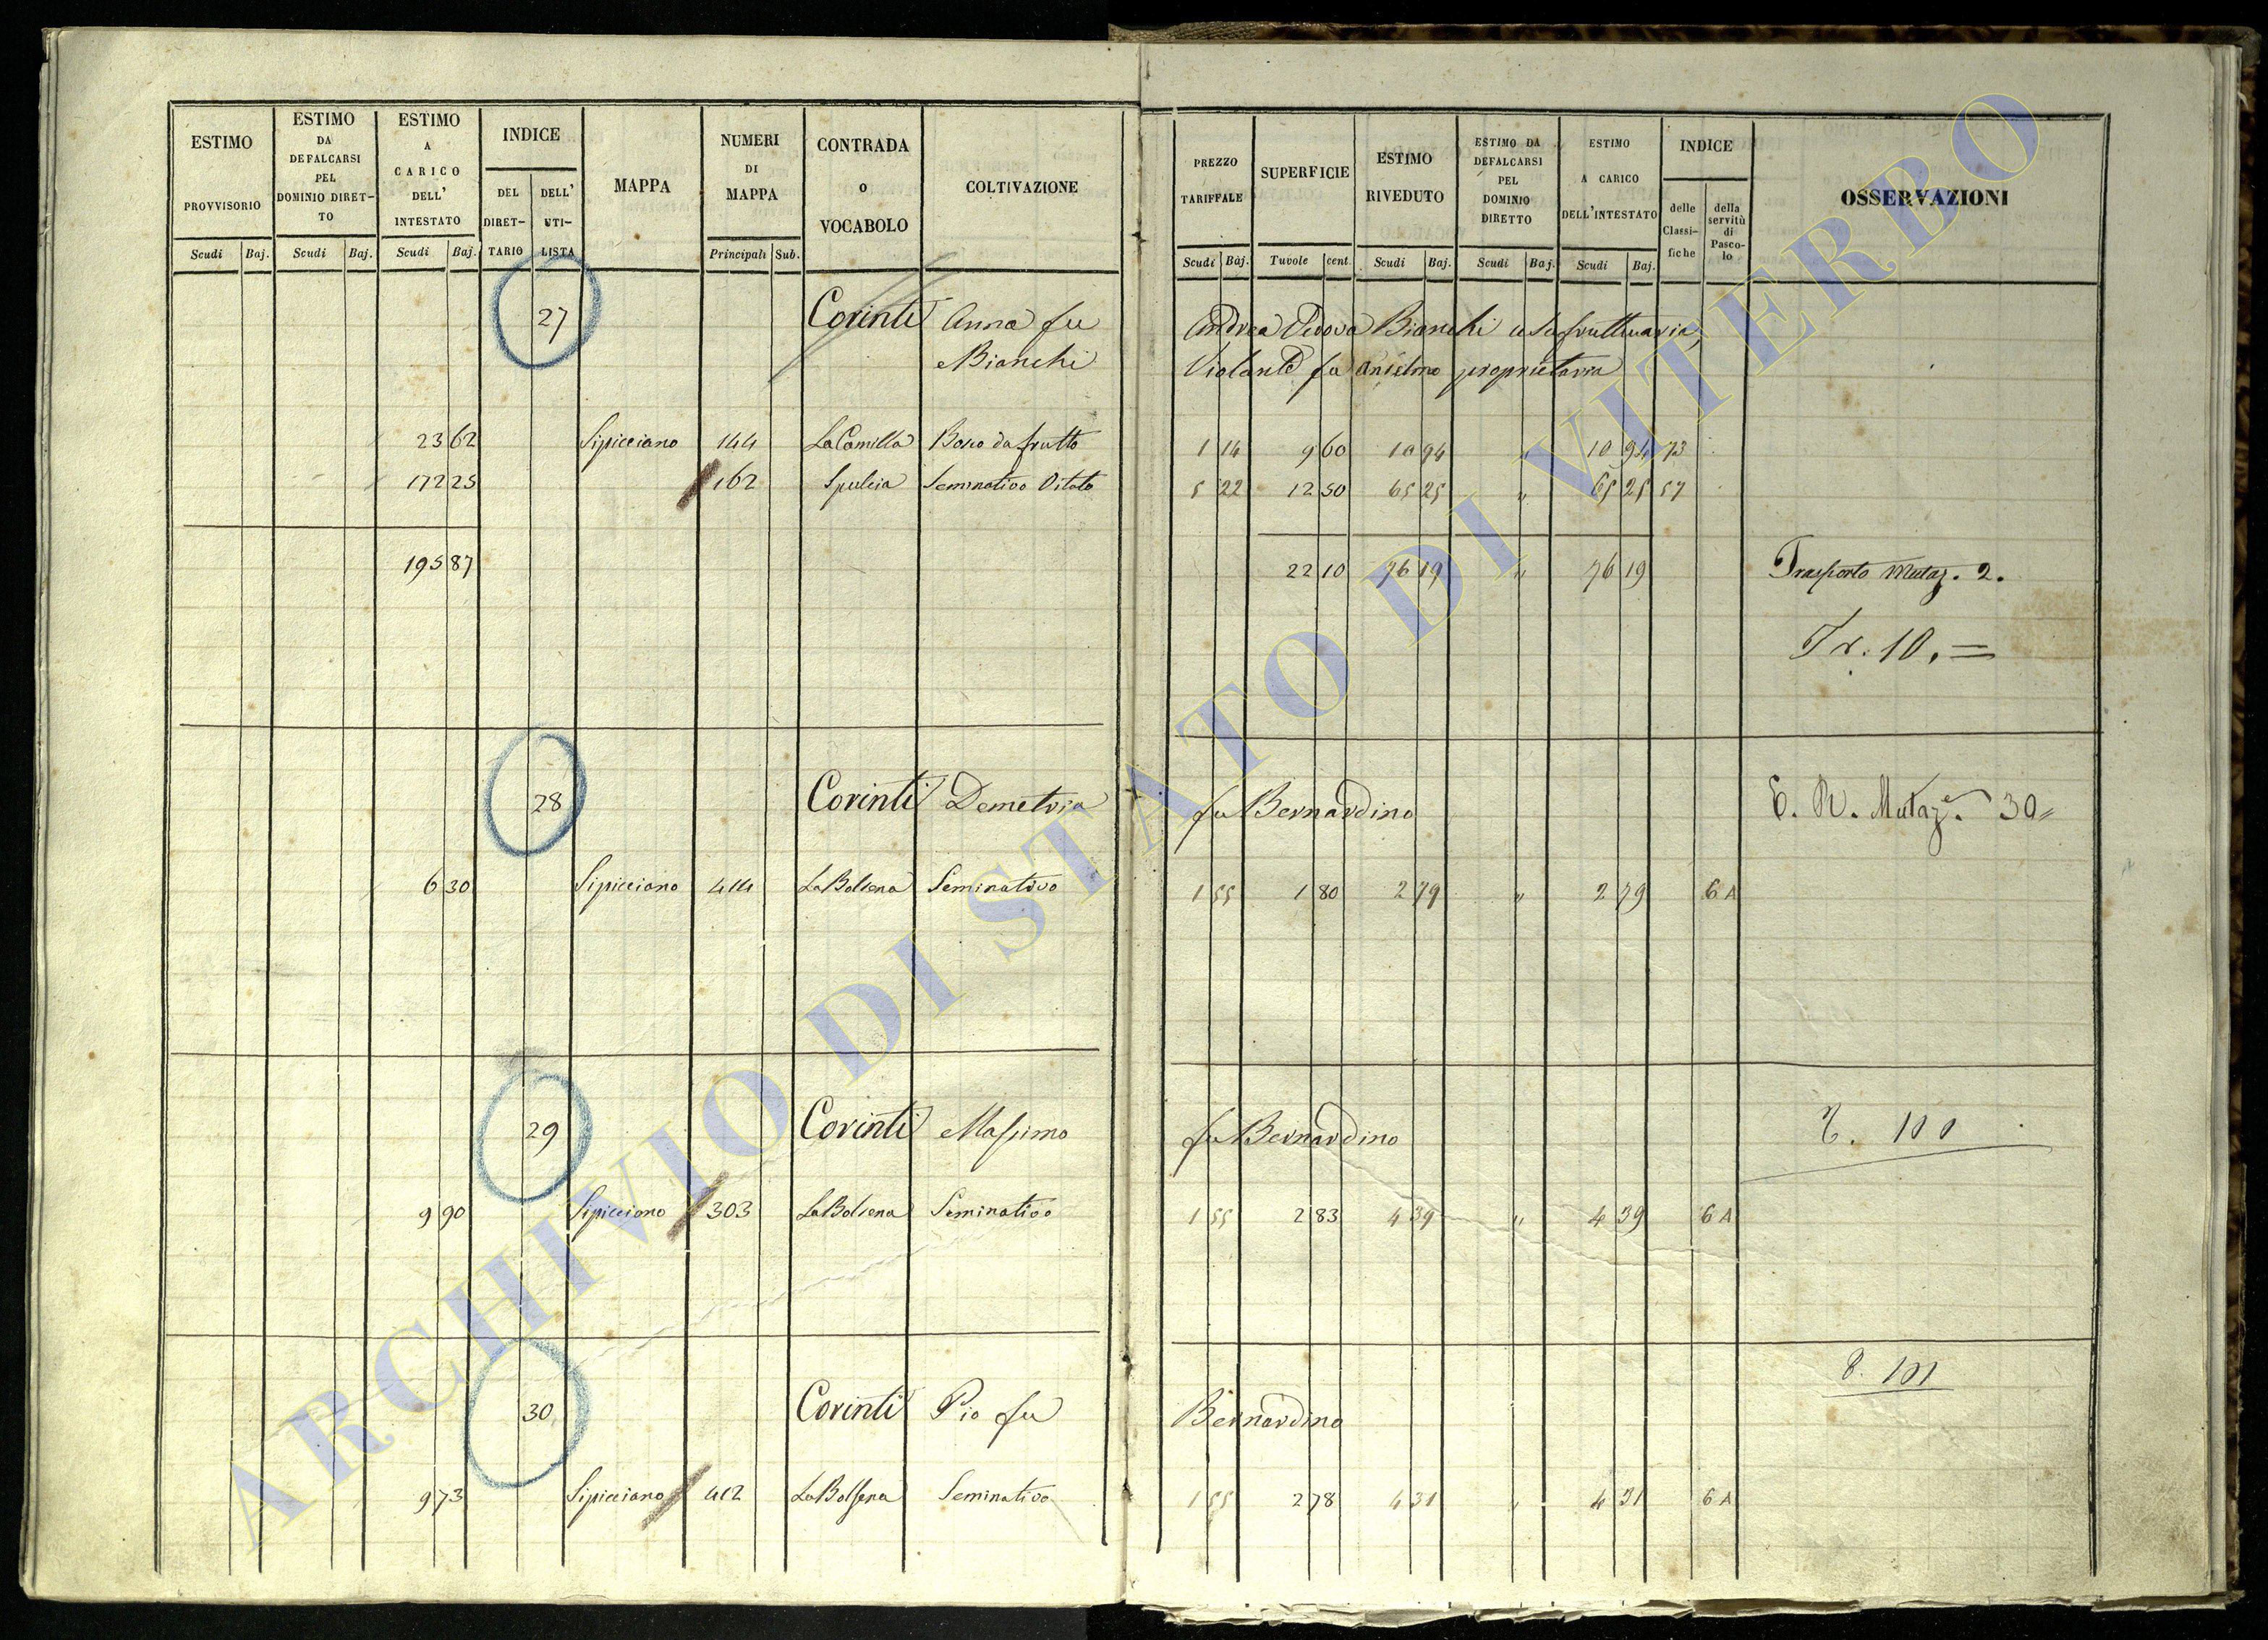 ESTIMO PROVVISORIO
ESTIMO DA DEFALCARSI PEL DOMINIO DIRET-TO
ESTIMO A CARICO DELL' INTESTATO
INDICE
DEL DIRET-TARIO
DELL' UTI-LISTA
MAPPA
NUMERI DI MAPPA
CONTRADA o VOCABOLO
COLTIVAZIONE
Scudi Baj. Scudi Baj. Scudi Baj. Principali Sub.
PREZZO TARIFFALE
SUPERFICIE
ESTIMO RIVEDUTO
ESTIMO DA DEFALCARSI PEL DOMINIO DIRETTO
ESTIMO A CARICO DELL'INTESTATO
INDICE
delle Classi-fiche
della servitù di Pasco-lo
OSSERVAZIONI
Scudi Baj. Tavole cent. Scudi Baj. Scudi Baj. Scudi Baj.
27 Corinti Anna fu Andrea Vedova Bianchi usufruttuaria,
Bianchi Violante fu Anselmo proprietaria
23 62 Sipicciano 144 La Camilla Bosco da frutto 1 14 9 60 10 94 " 10 94 73
172 25 162 Seminativo Vitato 5 22 12 50 65 25 " 65 25 57
195 87 22 10 76 19 " 76 19 Trasporto Mutaz. 2.
Tr. 10. =
28 Corinti Demetria fu Bernardino E. R. Mutaze. 30 "
6 30 Sipicciano 414 La Bolsena Seminativo 1 55 1 80 2 79 " 2 79 6 A
29 Corinti Massimo fu Bernardino 100
9 90 Sipicciano 303 La Bolsena Seminativo 1 55 2 83 4 39 " 4 39 6 A
101
30 Corinti Pio fu Bernardino
9 73 Sipicciano 412 La Bolsena Seminativo 1 55 2 78 4 31 " 4 31 6 A
ARCHIVIO DI STATO DI VITERBO